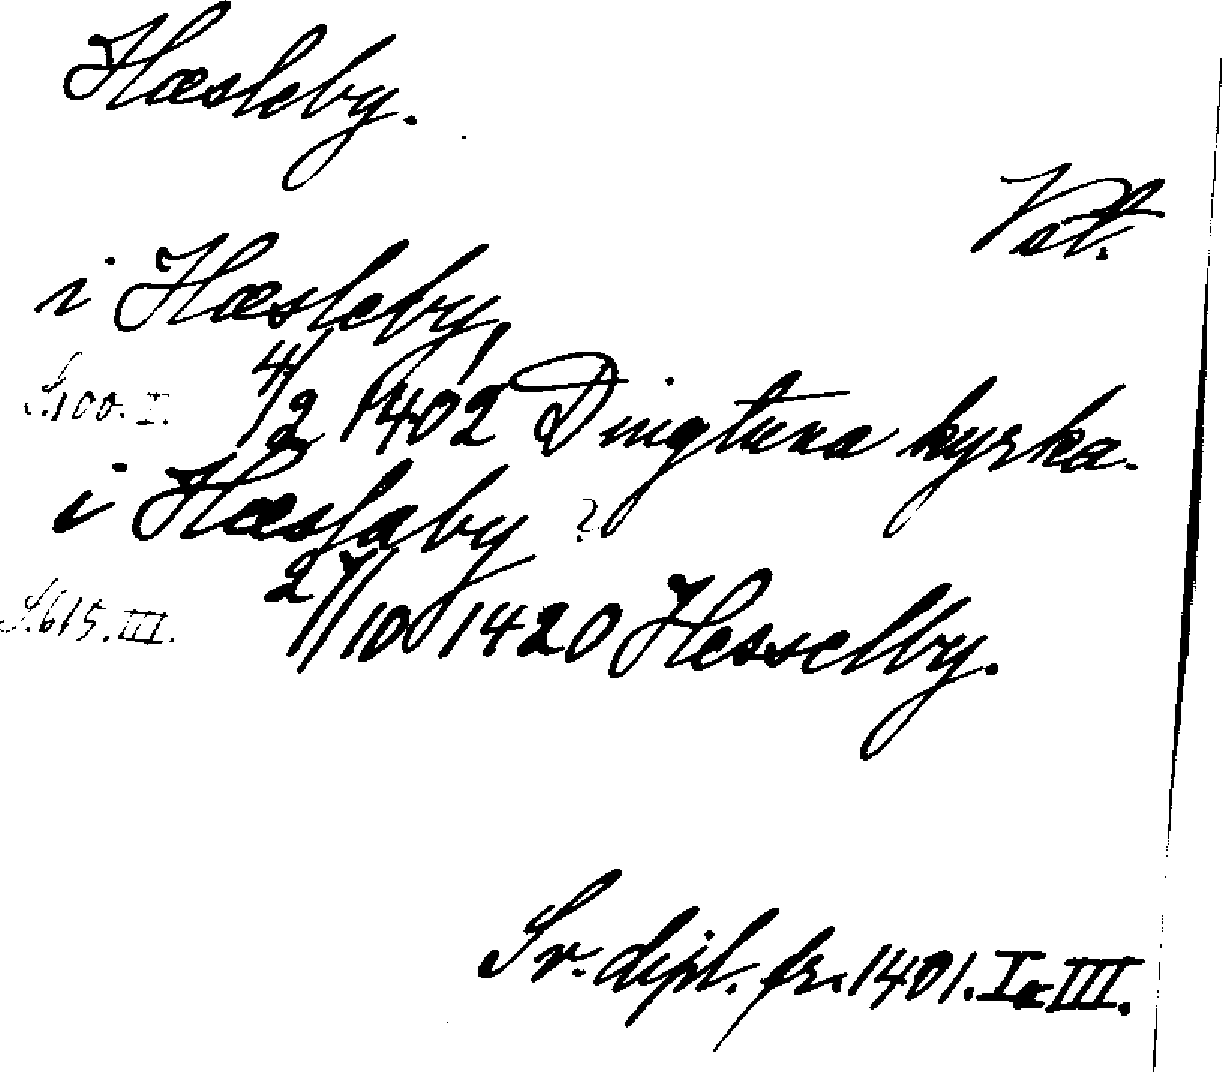 Hæsleby.
Vst.
i Hæsleby,
S. 100. I. 4/2 1402 Dingtuna kyrka.
i Hæslaby ?
S. 615. III. 27/10 1420 Hesselby.
Sv. dipl. fr. 1401. I o. III.